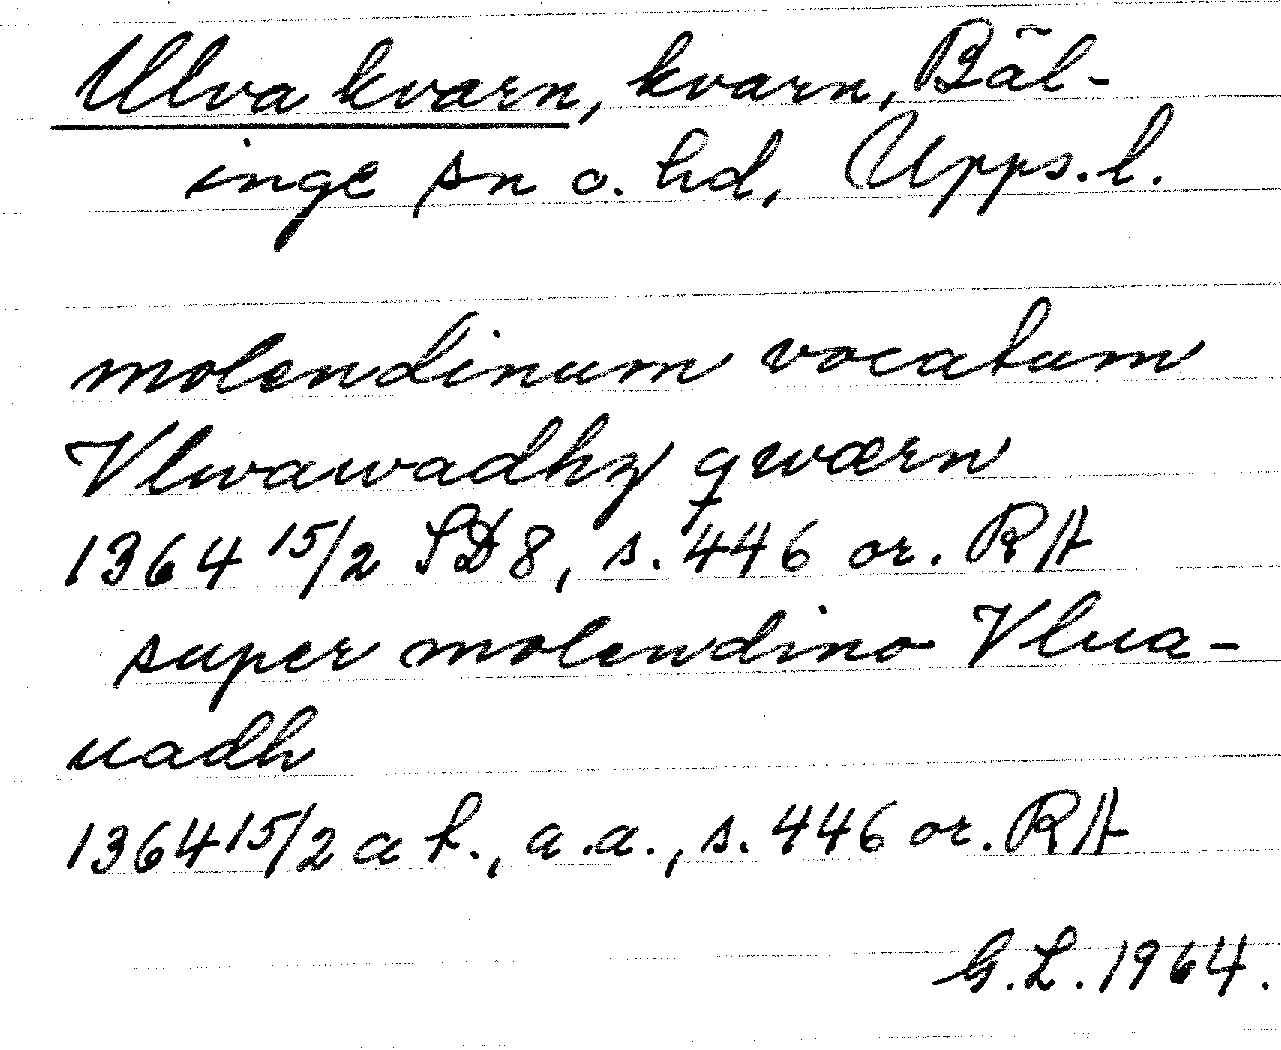 Ulva kvarn, kvarn, Bäl-
inge sn o. hd, Upps. l.
molendinum vocatum
Vlwawadhz qwærn
1364 15/2 SD 8, s. 446 or. RA
super molendino Vlua-
uadh
1364 15/2 a t., a.a., s. 446 or. RA
G.L. 1964.